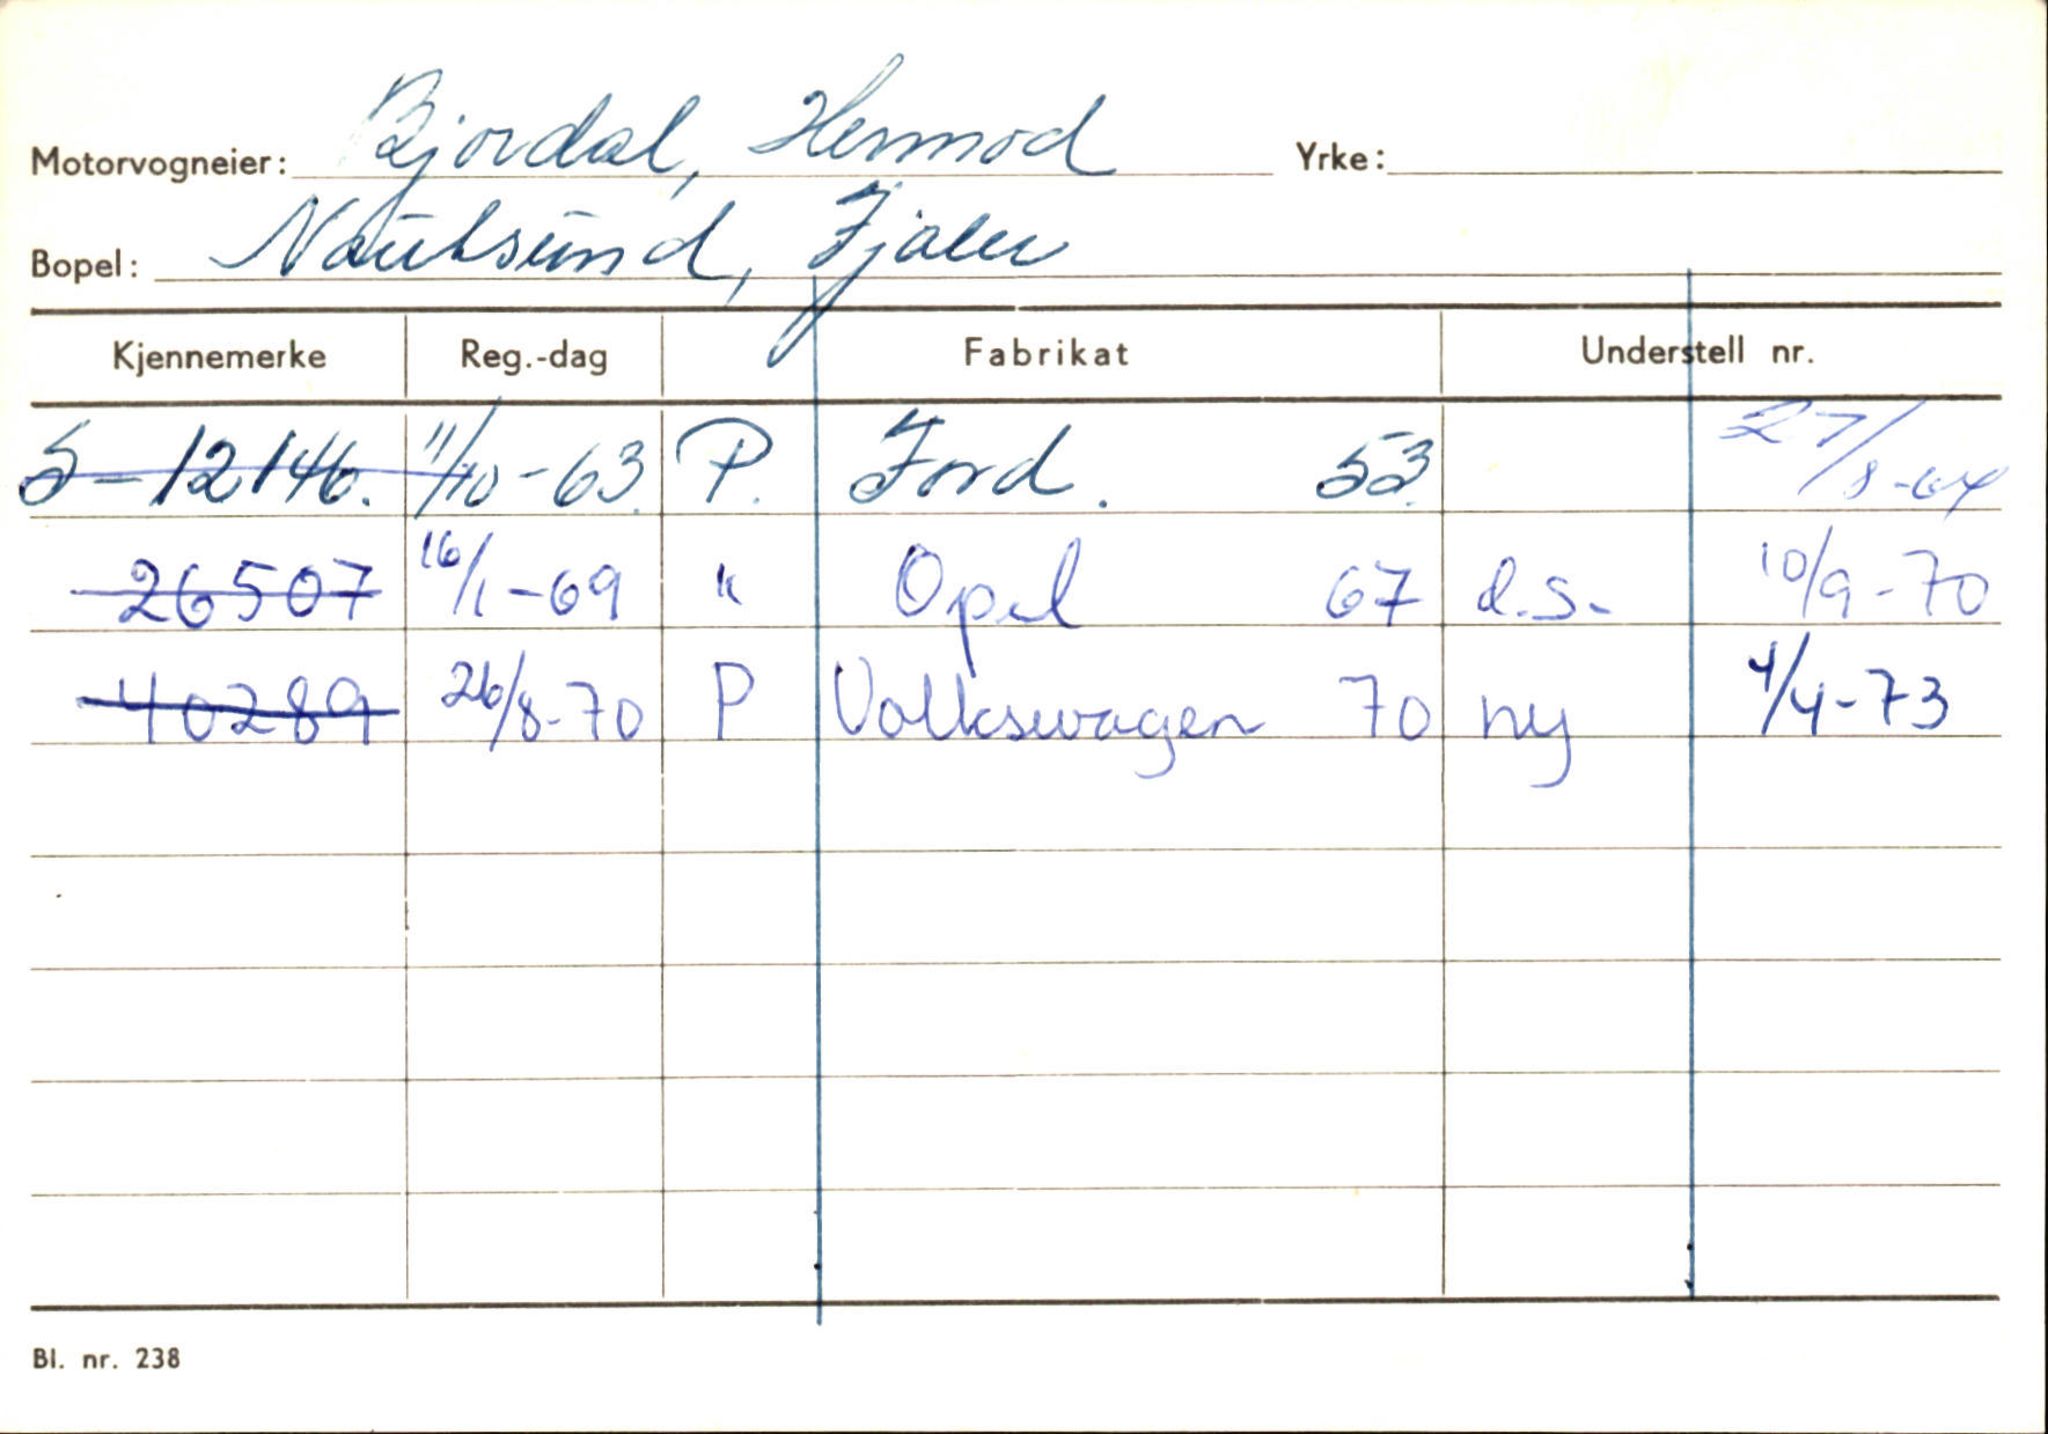 Motorvogneier: Bjordal, Hermod Yrke:
Bopel: Nautsund, Fjaler
Kjennemerke Reg.-dag Fabrikat Understell nr.
S-12146. 11/10-63. P. Ford. 53. 27/8-64
26507 16/1-69 " Opel 67 d.s. 10/9-70
40289 26/8-70 P Volkswagen 70 ny 4/4-73
Bl. nr. 238